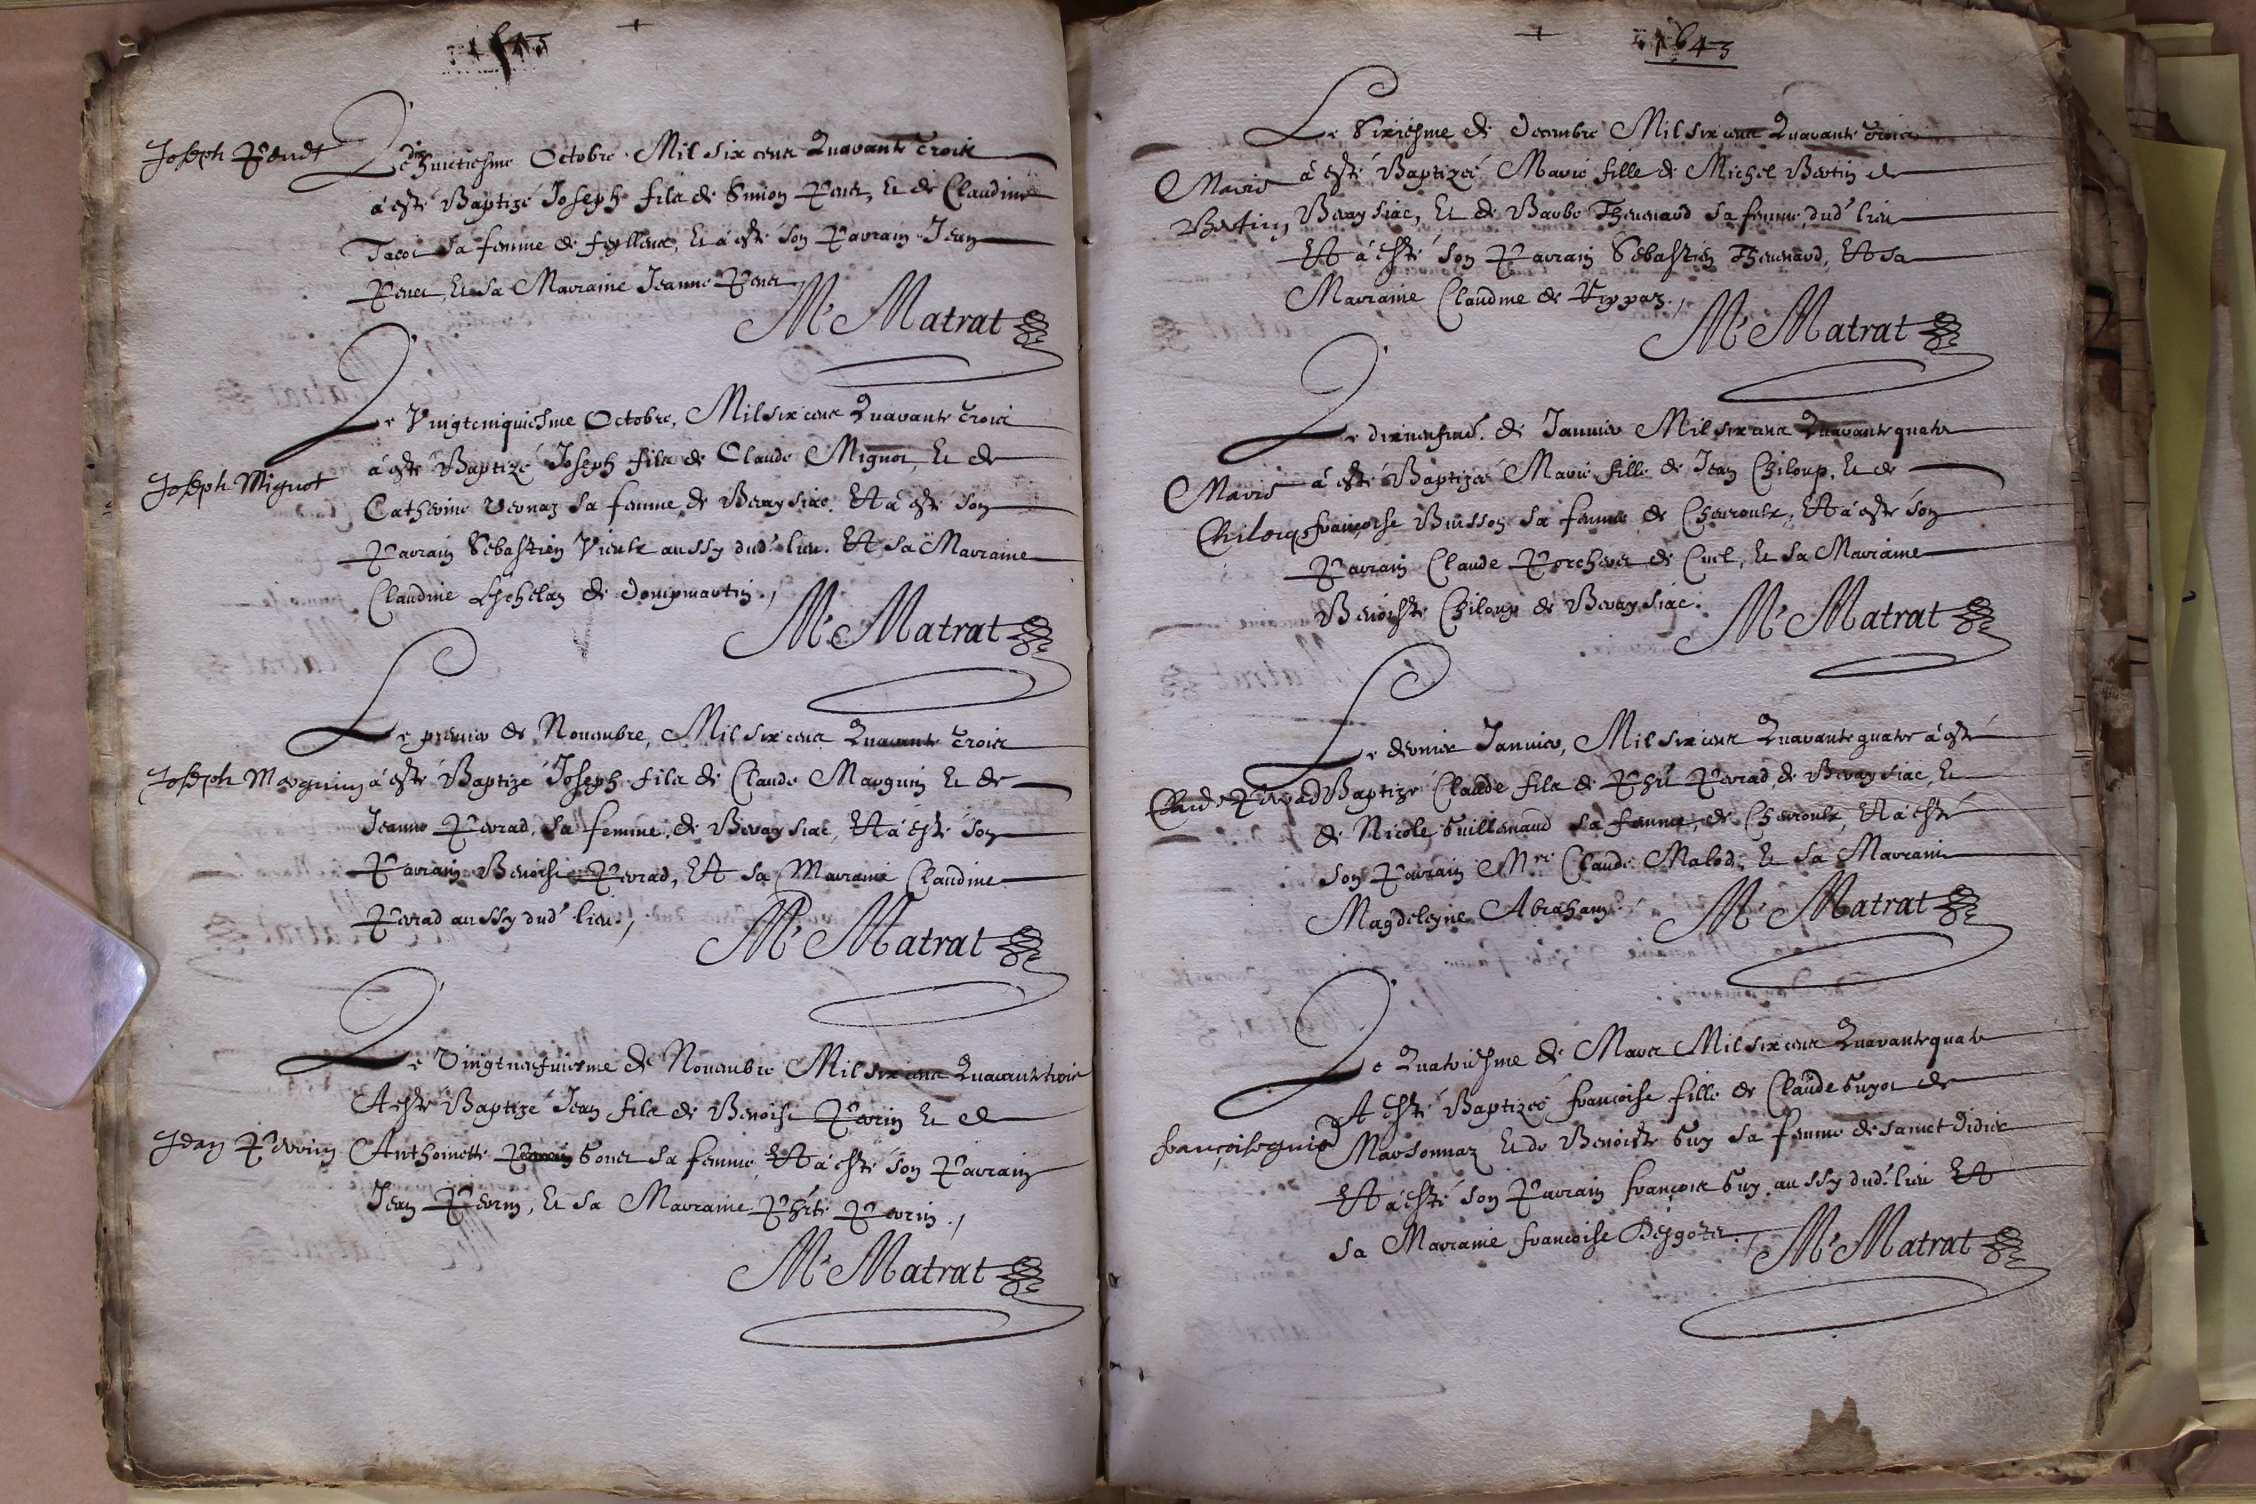 1643
Joseph Penet
Le dixhuictiesme Octobre Mil six cent Quarante trois
a esté Baptizé Joseph fils de Simon Penet, Et de Claudine
Tacot sa femme de feyllens, Et a esté son Parrain Jean
Penet, Et sa Marraine Jeanne Penet
M. Matrat
Joseph Mignot
Le Vingtciniquiesme Octobre, Mil six cent Quarante trois
a esté Baptizé Joseph fils de Claude Mignot, Et de
Catherine Vernaz sa femme de Bevaysiac. Et a esté son
Parrain Sebastien Vieux aussy dud' lieu. Et sa Marraine
Claudine de Dompmartin
M. Matrat
Joseph Morguin
Le premier de Novembre, Mil six cent Quarante trois
a esté Baptizé Joseph fils de Claude Marguin Et de
Jeanne Perrad, sa femme, de Bevaysiac, Et a esté son
Parrain Benoist Perrad, Et sa Marraine Claudine
Perrad aussy dud' lieu
M. Matrat
Jean Perrin
Le Vingtneufviesme de Novembre Mil six cent Quarante trois
A esté Baptizé Jean fils de Benoist Perrin Et de
Anthoinette Gonet sa femme, Et a esté son Parrain
Jean Perrin, Et sa Marraine Phte Perrin
M. Matrat
1643
Marie
Bertin
Le Sixiesme de Decembre Mil six cent Quarante trois
a esté Baptizeé Marie fille de Michel Bertin de
Bevaysiac, Et de Barbe Thevenard sa femme, dud' lieu
Et a esté son Parrain Sebastien Thevenard, Et sa
Marraine Claudine de
M. Matrat
Marie
Chiloup
Le dixneufvie. de Janvier Mil six cent Quarante quatre
a esté Baptizeé Marie fille de Jean Chiloup, Et de
françoise Buisson sa femme de Chevroulx, Et a esté son
Parrain Claude Porcheret de Cuet, Et sa Marraine
Benoiste Chiloup de Bevaysiac.
M. Matrat
Claude Perrad
Le dernier Janvier, Mil six cent Quarante quatre a esté
Baptizé Claude fils de Phü Perrad, de Bevaysiac, Et
de Nicole Guillenaud sa femme, de Chevroulx, Et a esté
son Parrain Mre Claude Malod, Et sa Marraine
Magdeleyne Abraham
M. Matrat
françoise guiot
Le Quatriesme de Mars Mil six cent Quarante quatre
A esté Baptizeé françoise fille de Claude Guyot de
Marsonnaz Et de Benoiste Guy sa femme de sainct Didier
Et a esté son Parrain françois Guy aussy dud' lieu Et
sa Marraine françoise
M. Matrat